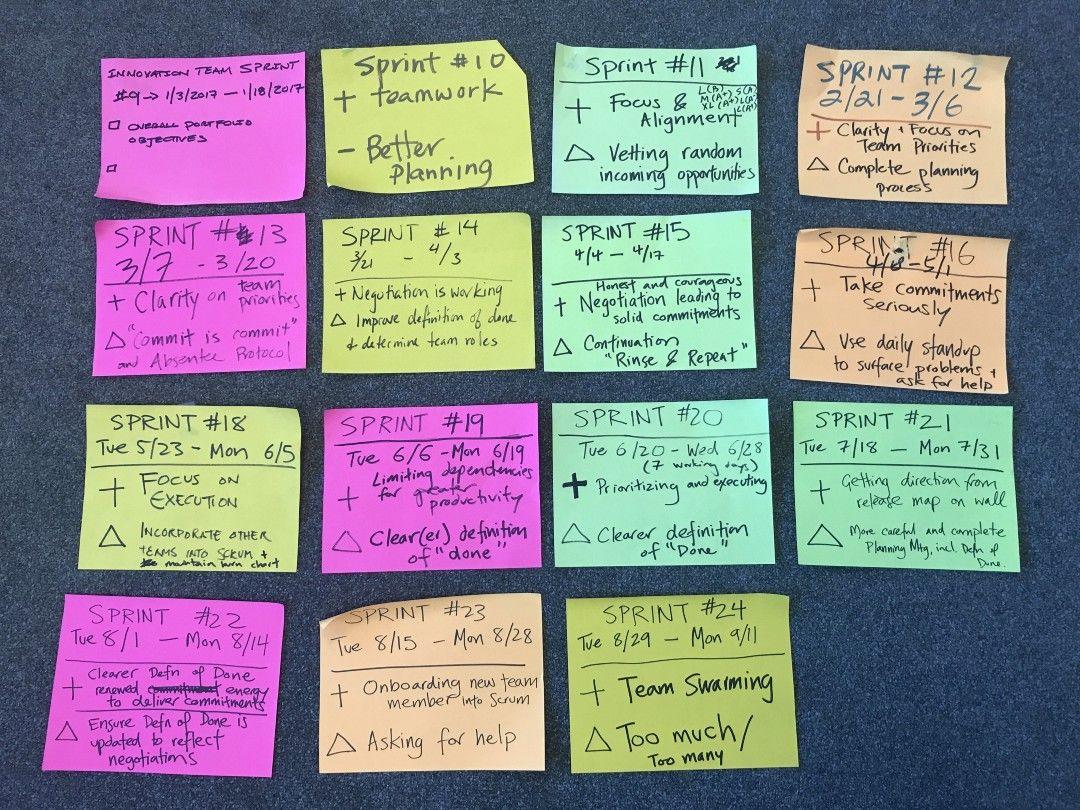 INNOVATION TEAM SPRINT
#9 → 1/3/2017 — 1/18/2017
□ OVERALL PORTFOLIO
OBJECTIVES
□
Sprint #10
+ teamwork
- Better
planning
Sprint #11
+ Focus &
Alignment
L(A)
M(A+) S(A)
XL(A+) L(A)
L(A+)
△ Vetting random
incoming opportunities
SPRINT #12
2/21 - 3/6
+ Clarity + Focus on
Team Priorities
△ Complete planning
process
SPRINT #13
3/7 - 3/20
+ Clarity on team
priorities
△ "Commit is commit"
and Absentee Protocol
SPRINT #14
3/21 - 4/3
+ Negotiation is working
△ Improve definition of done
+ determine team roles
SPRINT #15
4/4 — 4/17
Honest and courageous
+ Negotiation leading to
solid commitments
△ Continuation
"Rinse & Repeat"
SPRINT #16
- 5/1
+ Take commitments
seriously
△ Use daily standup
to surface problems +
ask for help
SPRINT #18
Tue 5/23 - Mon 6/5
+ FOCUS ON
EXECUTION
△ INCORPORATE OTHER
TEAMS INTO SCRUM +
maintain burn chart
SPRINT #19
Tue 6/6 - Mon 6/19
+ Limiting dependencies
for greater
productivity
△ Clear(er) definition
of "done"
SPRINT #20
Tue 6/20 - Wed 6/28
(7 working days)
+ Prioritizing and executing
△ Clearer definition
of "Done"
SPRINT #21
Tue 7/18 — Mon 7/31
+ Getting direction from
release map on wall
△ More careful and complete
Planning Mtg, incl. Defn of
Done.
SPRINT #22
Tue 8/1 — Mon 8/14
+ Clearer Defn of Done
renewed energy
to deliver commitments
△ Ensure Defn of Done is
updated to reflect
negotiations
SPRINT #23
Tue 8/15 - Mon 8/28
+ Onboarding new team
member into Scrum
△ Asking for help
SPRINT #24
Tue 8/29 - Mon 9/11
+ Team Swarming
△ Too much/
Too many